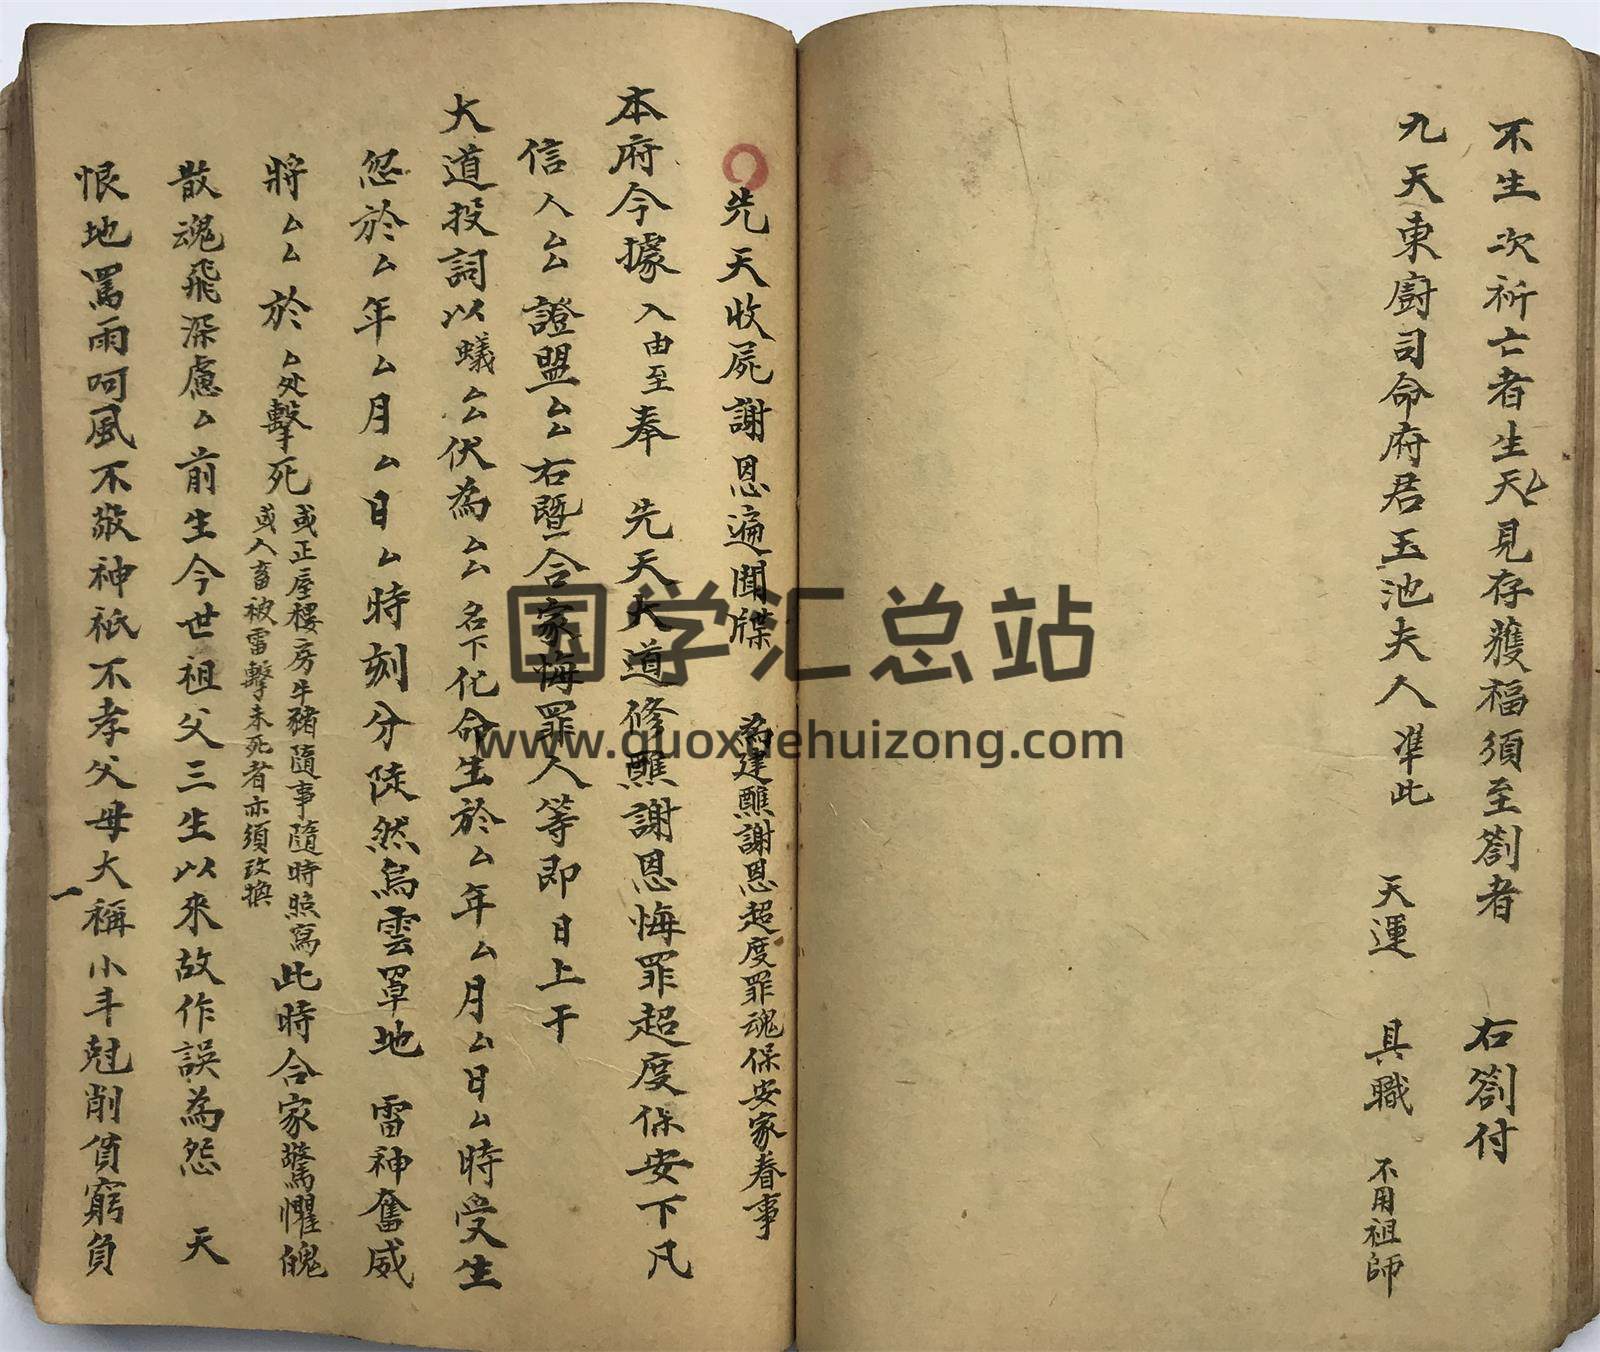 不生次祈亡者生天見存獲福須至劄者　右劄付
九天東廚司命府君玉池夫人准此　天運　具職　不用祖師
先天收屍謝恩遍聞牒　為建醮謝恩超度罪魂保安家眷事
本府今據入由至奉　先天大道修醮謝恩悔罪超度保安下凡
信人厶厶證盟厶厶右暨一合家悔罪人等即日上干
大道投詞以蟻厶厶伏為厶厶名下化命生於厶年厶月厶日厶時受生
忽於厶年厶月厶日厶時刻分陡然烏雲罩地　雷神奮威
將厶厶於厶处擊死或正屋樓房牛豬隨事隨時照寫或人畜被雷擊未死者亦須改換此時合家驚懼魄
散魂飛深慮厶前生今世祖父三生以來故作誤為怨　天
恨地罵雨呵風不敬神祇不孝父母大稱小斗尅削貧窮負
国学汇总站
www.guoxuehuizong.com